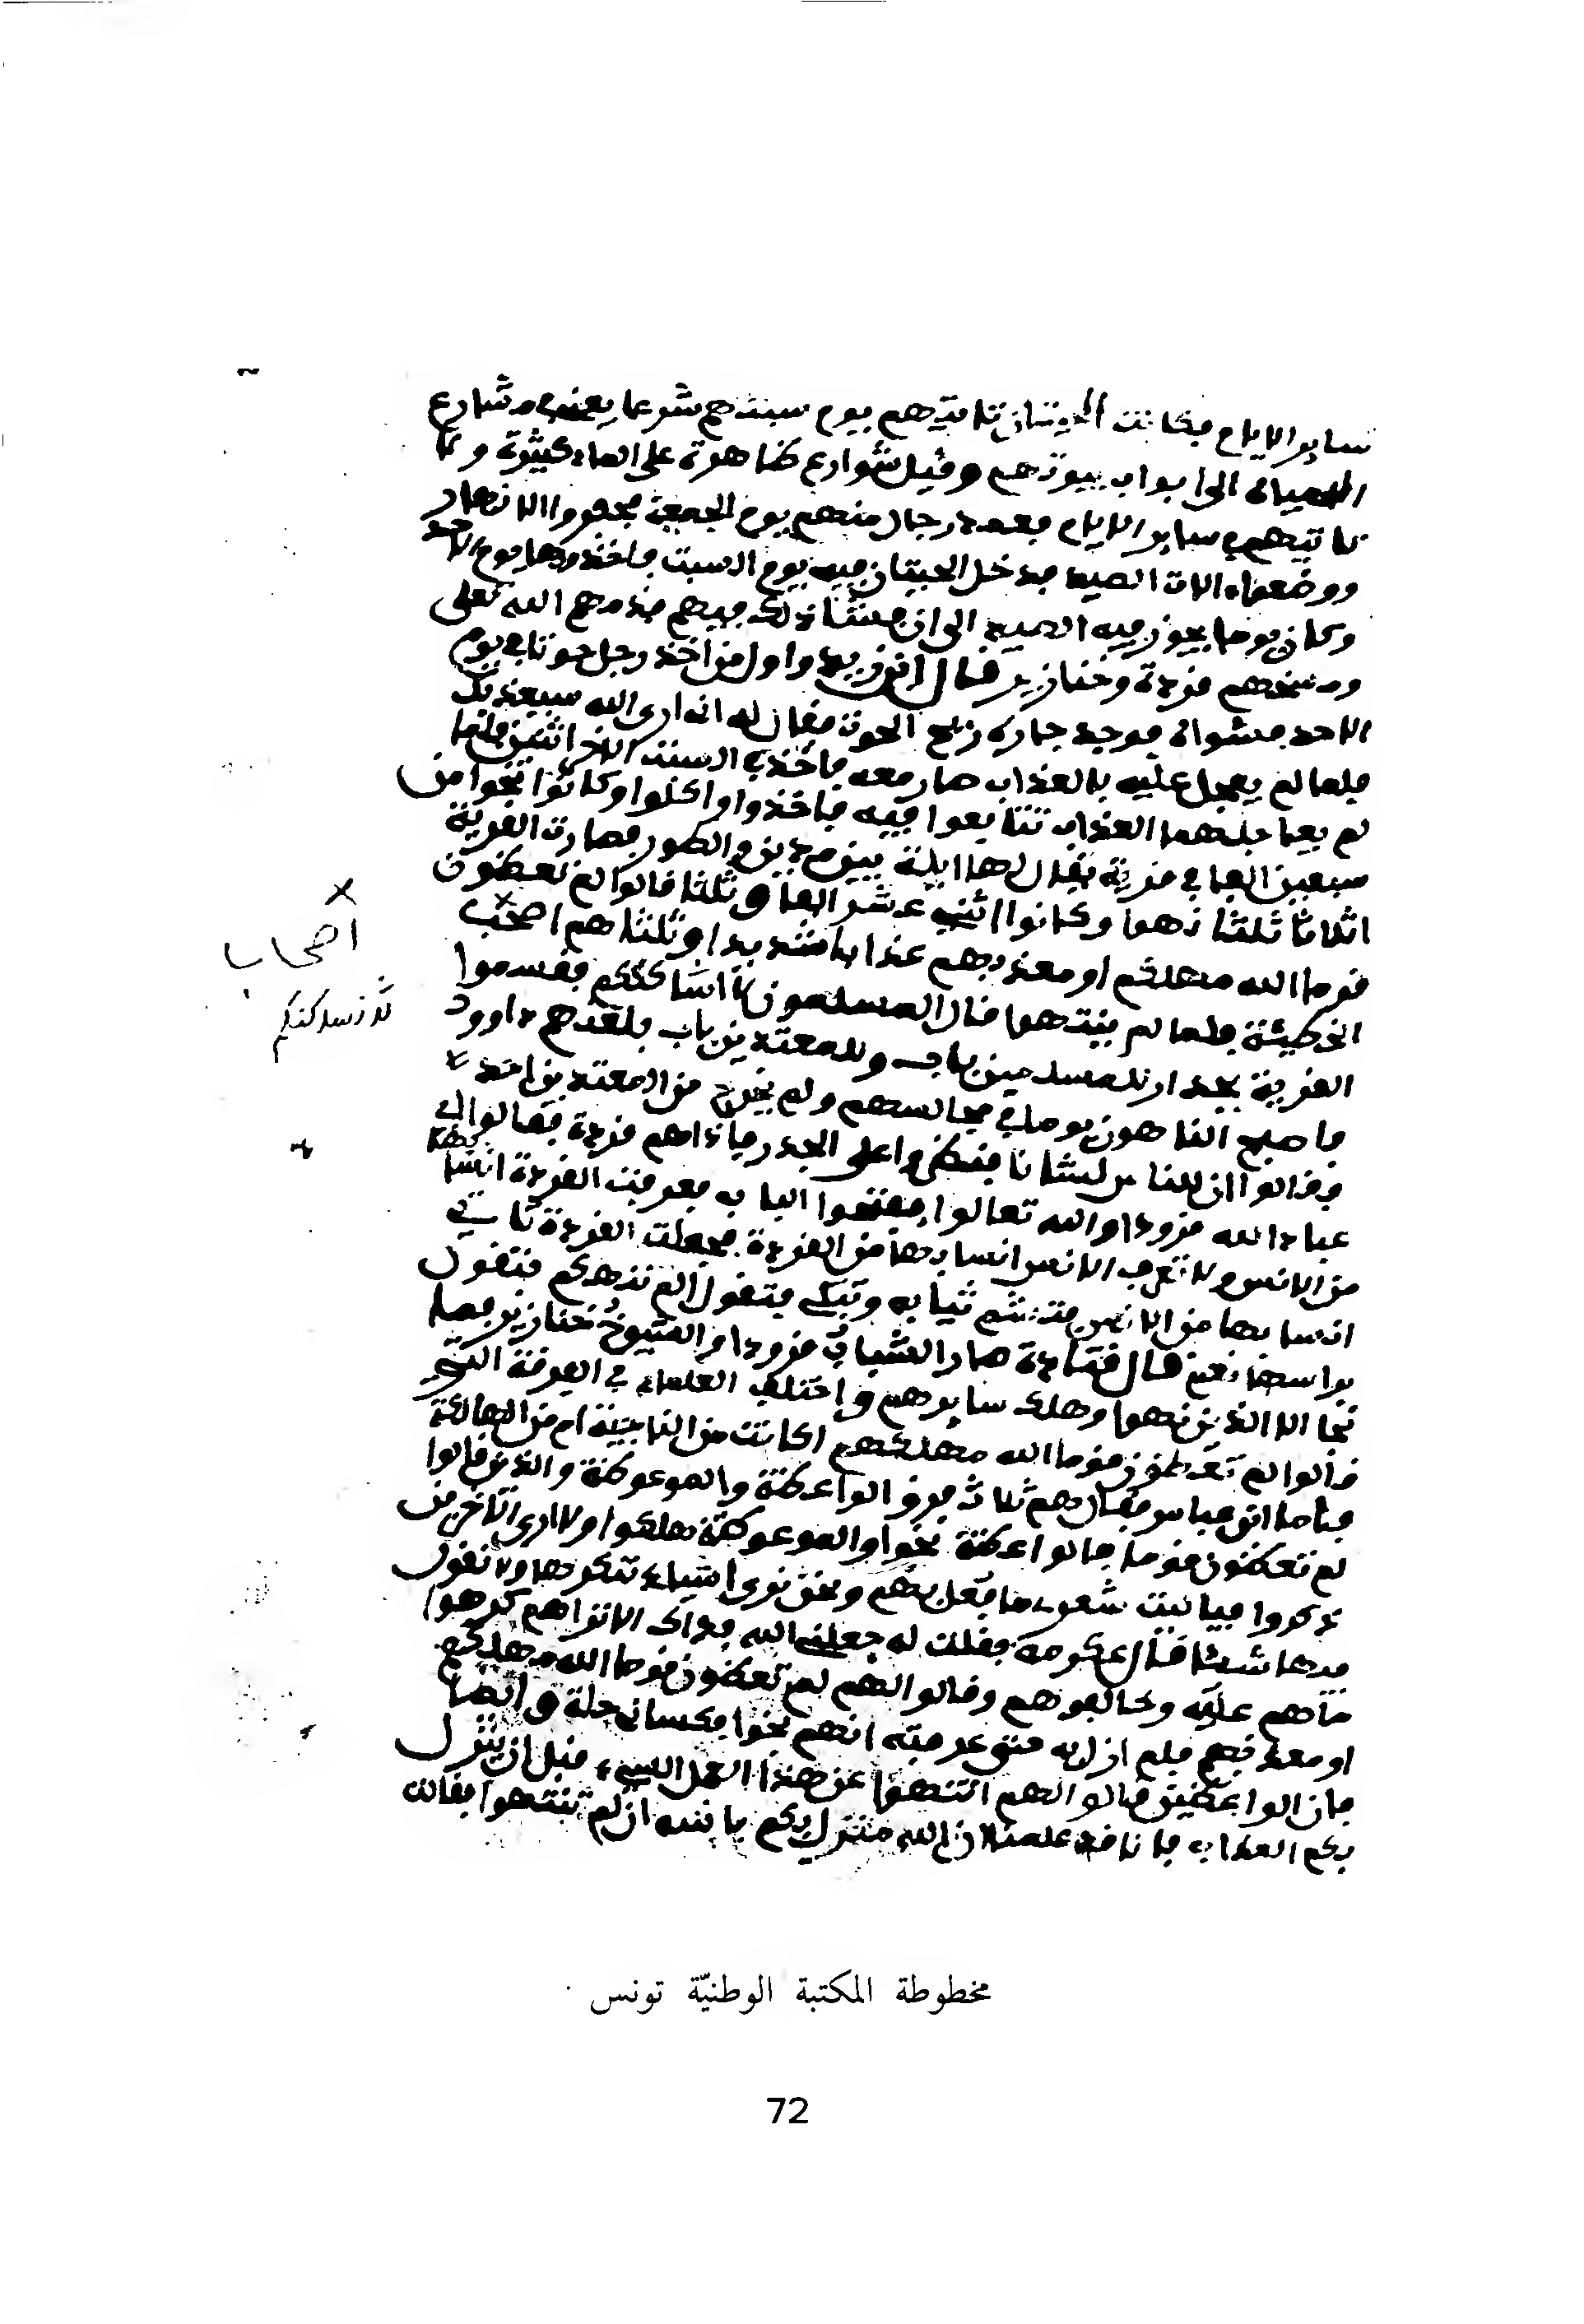 ساير الايام فكانت الحيتان تاتيهم يوم سبتهم شرعا يعني مشارع
المياه الى ابواب بيوتهم وقيل شوارع ظاهرة على الماء كثيرة ولا
تاتيهم في ساير الايام فعمد رجال منهم يوم الجمعة فحفروا الانهار
ووضعوا الات الصيد فدخل الحيتان فيه يوم السبت فاخذوها يوم الاحد
وكان يوما يجوز فيه الصيد الى ان فشا ذلك فيهم فذمهم الله تعلى
ومسخهم قردة وخنازير قال ابن زيد واول من اخذ رجل حوتا في يوم
الاحد فشواه فوجد جاره ريح الحوت فقال له اني ارى الله سيعذبك
فلما لم يعجل عليه بالعذاب صار معه فاخذ في السبت الاخر اثنين فلما
لم يعاجلهما العذاب تتايعوا فيه فاخذوا واكلوا وكانوا نحوا من
سبعين الفا في قرية يقال لها ايلة بين مدين والطور فصارت القرية
اثلاثا ثلثا نهوا وكانوا اثنى عشر الفا وثلثا قالوا لم تعظون
قوما الله مهلكهم او معذبهم عذابا شديدا وثلثا هم اصحب
الخطيئة فلما لم ينتهوا قال المسلمون لا نساكنكم فقسموا
القرية بجدار للمسلمين باب وللمعتدين باب فلعنهم داوود
فاصبح الناهون يوما في مجالسهم ولم يخرج من المعتدين احد
فقالوا ان للناس لشانا فنظروا على الجدر فاذا هم قردة فقالوا اي
عباد الله قرود والله تعالوا ففتحوا الباب فعرفت القردة انسابها
من الانس ولا تعرف الانس انسابها من القردة فجعلت القردة تاتي
انسابها من الانس فتشم ثيابه وتبكي فتقول الم ننهكم فتقول
براسها نعم قال قتادة صار الشباب قرودا والشيوخ خنازير فما
نجا الا الذين نهوا وهلك سايرهم واختلف العلماء في الفرقة التي
قالوا لم تعظون قوما الله مهلكهم اكانت من الناجية ام من الهالكة
فاما ابن عباس فقال هم ثلاث فرق الواعظة والموعوظة والذين قالوا
لم تعظون قوما فالواعظة نجوا والموعوظة هلكوا ولا ادري الاخرين
ذكروا فيا ليت شعري ما فعل بهم ونحن نرى اشياء ننكرها ولا نقول
فيها شيئا قال عكرمة فقلت له جعلني الله فداك الا تراهم كرهوا
ما هم عليه وخالفوهم وقالوا لهم لم تعظون قوما الله مهلكهم
او معذبهم فلم ازل به حتى عرفته انهم نجوا فكساني حلة وايضا
فان الواعظين قالوا لهم انتهوا عن هذا العمل السيء قبل ان ينزل
بكم العذاب فانا قد علمنا ان الله منزل بكم باسه ان لم تنتهوا فقالت
أصحاب
لا نساكنكم
مخطوطة المكتبة الوطنيّة تونس
72